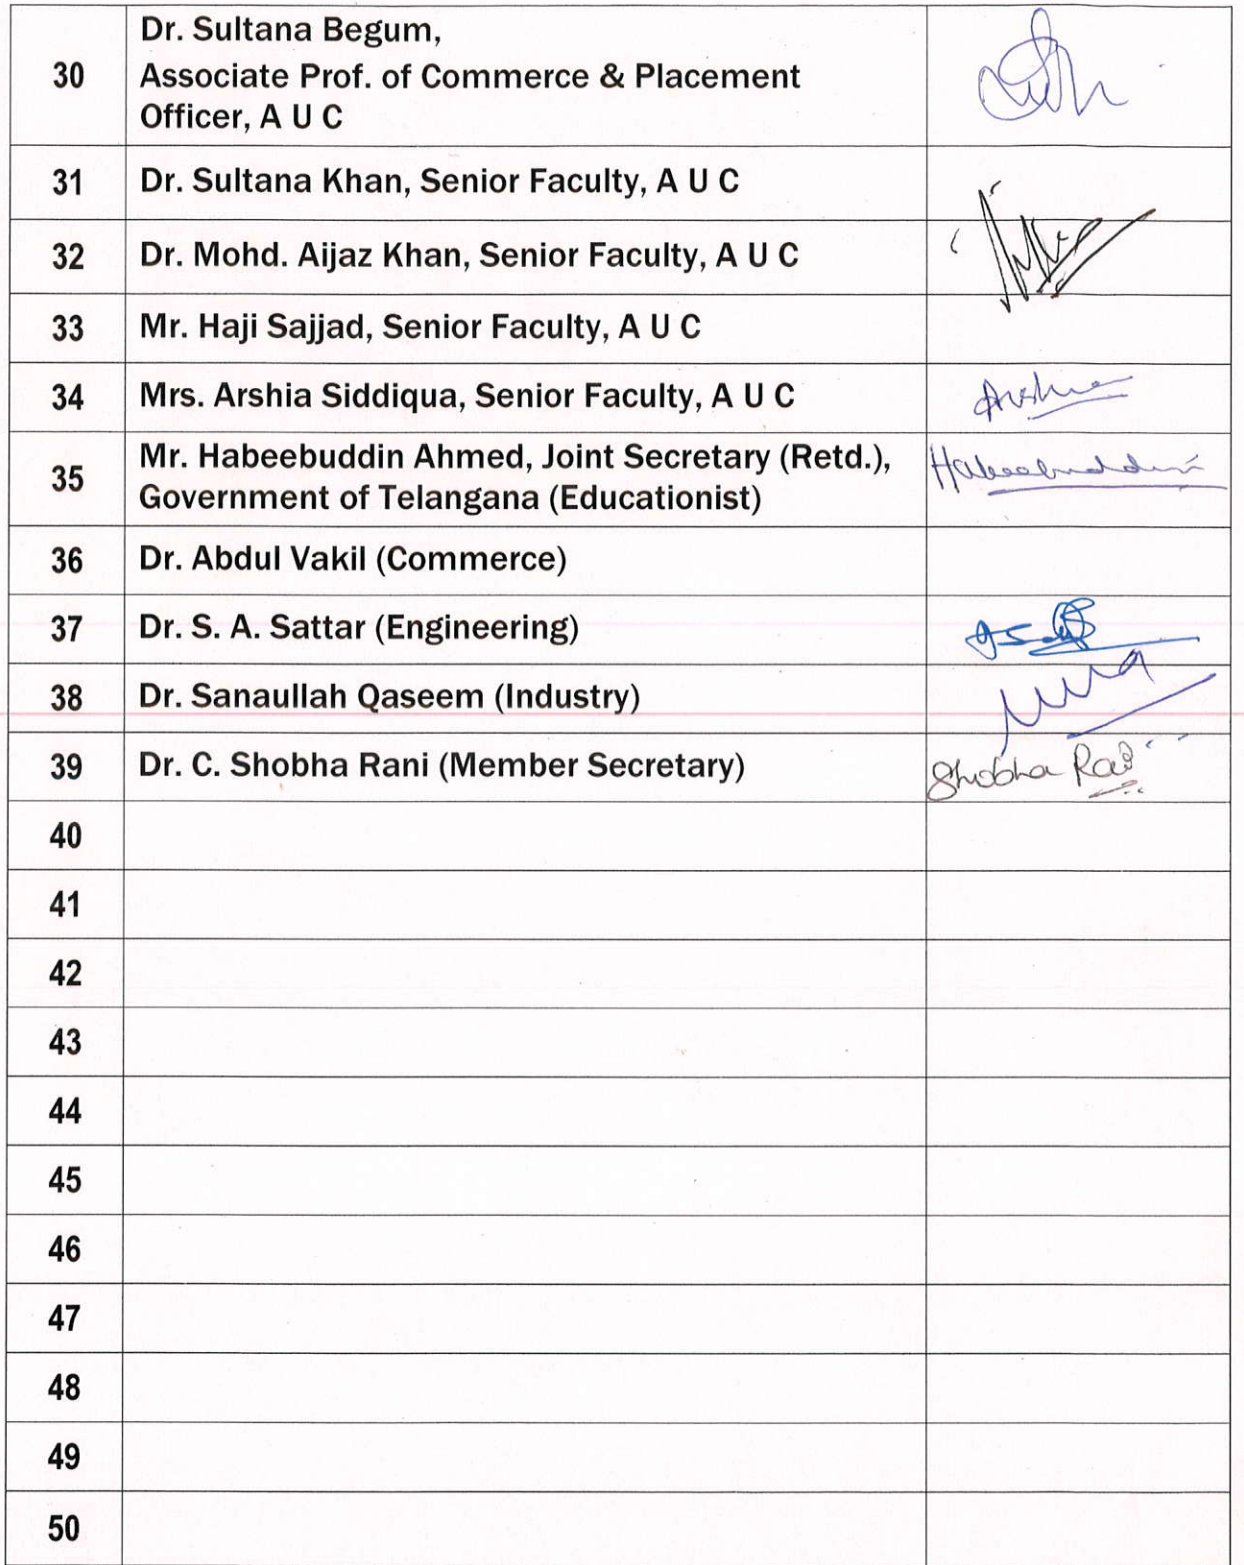 30 Dr. Sultana Begum,
Associate Prof. of Commerce & Placement
Officer, A U C
31 Dr. Sultana Khan, Senior Faculty, A U C
32 Dr. Mohd. Aijaz Khan, Senior Faculty, A U C
33 Mr. Haji Sajjad, Senior Faculty, A U C
34 Mrs. Arshia Siddiqua, Senior Faculty, A U C
35 Mr. Habeebuddin Ahmed, Joint Secretary (Retd.), Habeebuddin
Government of Telangana (Educationist)
36 Dr. Abdul Vakil (Commerce)
37 Dr. S. A. Sattar (Engineering)
38 Dr. Sanaullah Qaseem (Industry)
39 Dr. C. Shobha Rani (Member Secretary) Shobha Rani
40
41
42
43
44
45
46
47
48
49
50